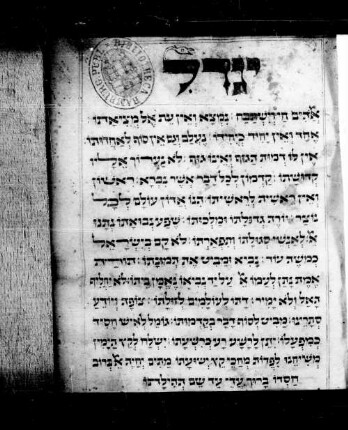 יגדל
אלהים חי וישתבח: נמצא ואין עת אל מציאותו
אחד ואין יחיד כיחודו: נעלם וגם אין סוף לאחדותו
אין לו דמות הגוף ואינו גוף: לא נערוך אליו
קדושתו: קדמון לכל דבר אשר נברא: ראשון
ואין ראשית לראשיתו: הנו אדון עולם לכל
נוצר יורה גדולתו ומלכותו: שפע נבואתו נתנו
אל אנשי סגולתו ותפארתו: לא קם בישראל
כמשה עוד: נביא ומביט את תמונתו: תורת
אמת נתן לעמו אל על יד נביאו נאמן ביתו: לא יחליף
האל ולא ימיר: דתו לעולמים לזולתו: צופה ויודע
סתרינו: מביט לסוף דבר בקדמותו: גומל לאיש חסיד
כמפעלו: יתן לרשע רע כרשעתו: ישלח לקץ הימין
משיחנו לפדות מחכי קץ ישועתו: מתים יחיה אל ברוב
חסדו ברוך עדי עד שם תהילתו: